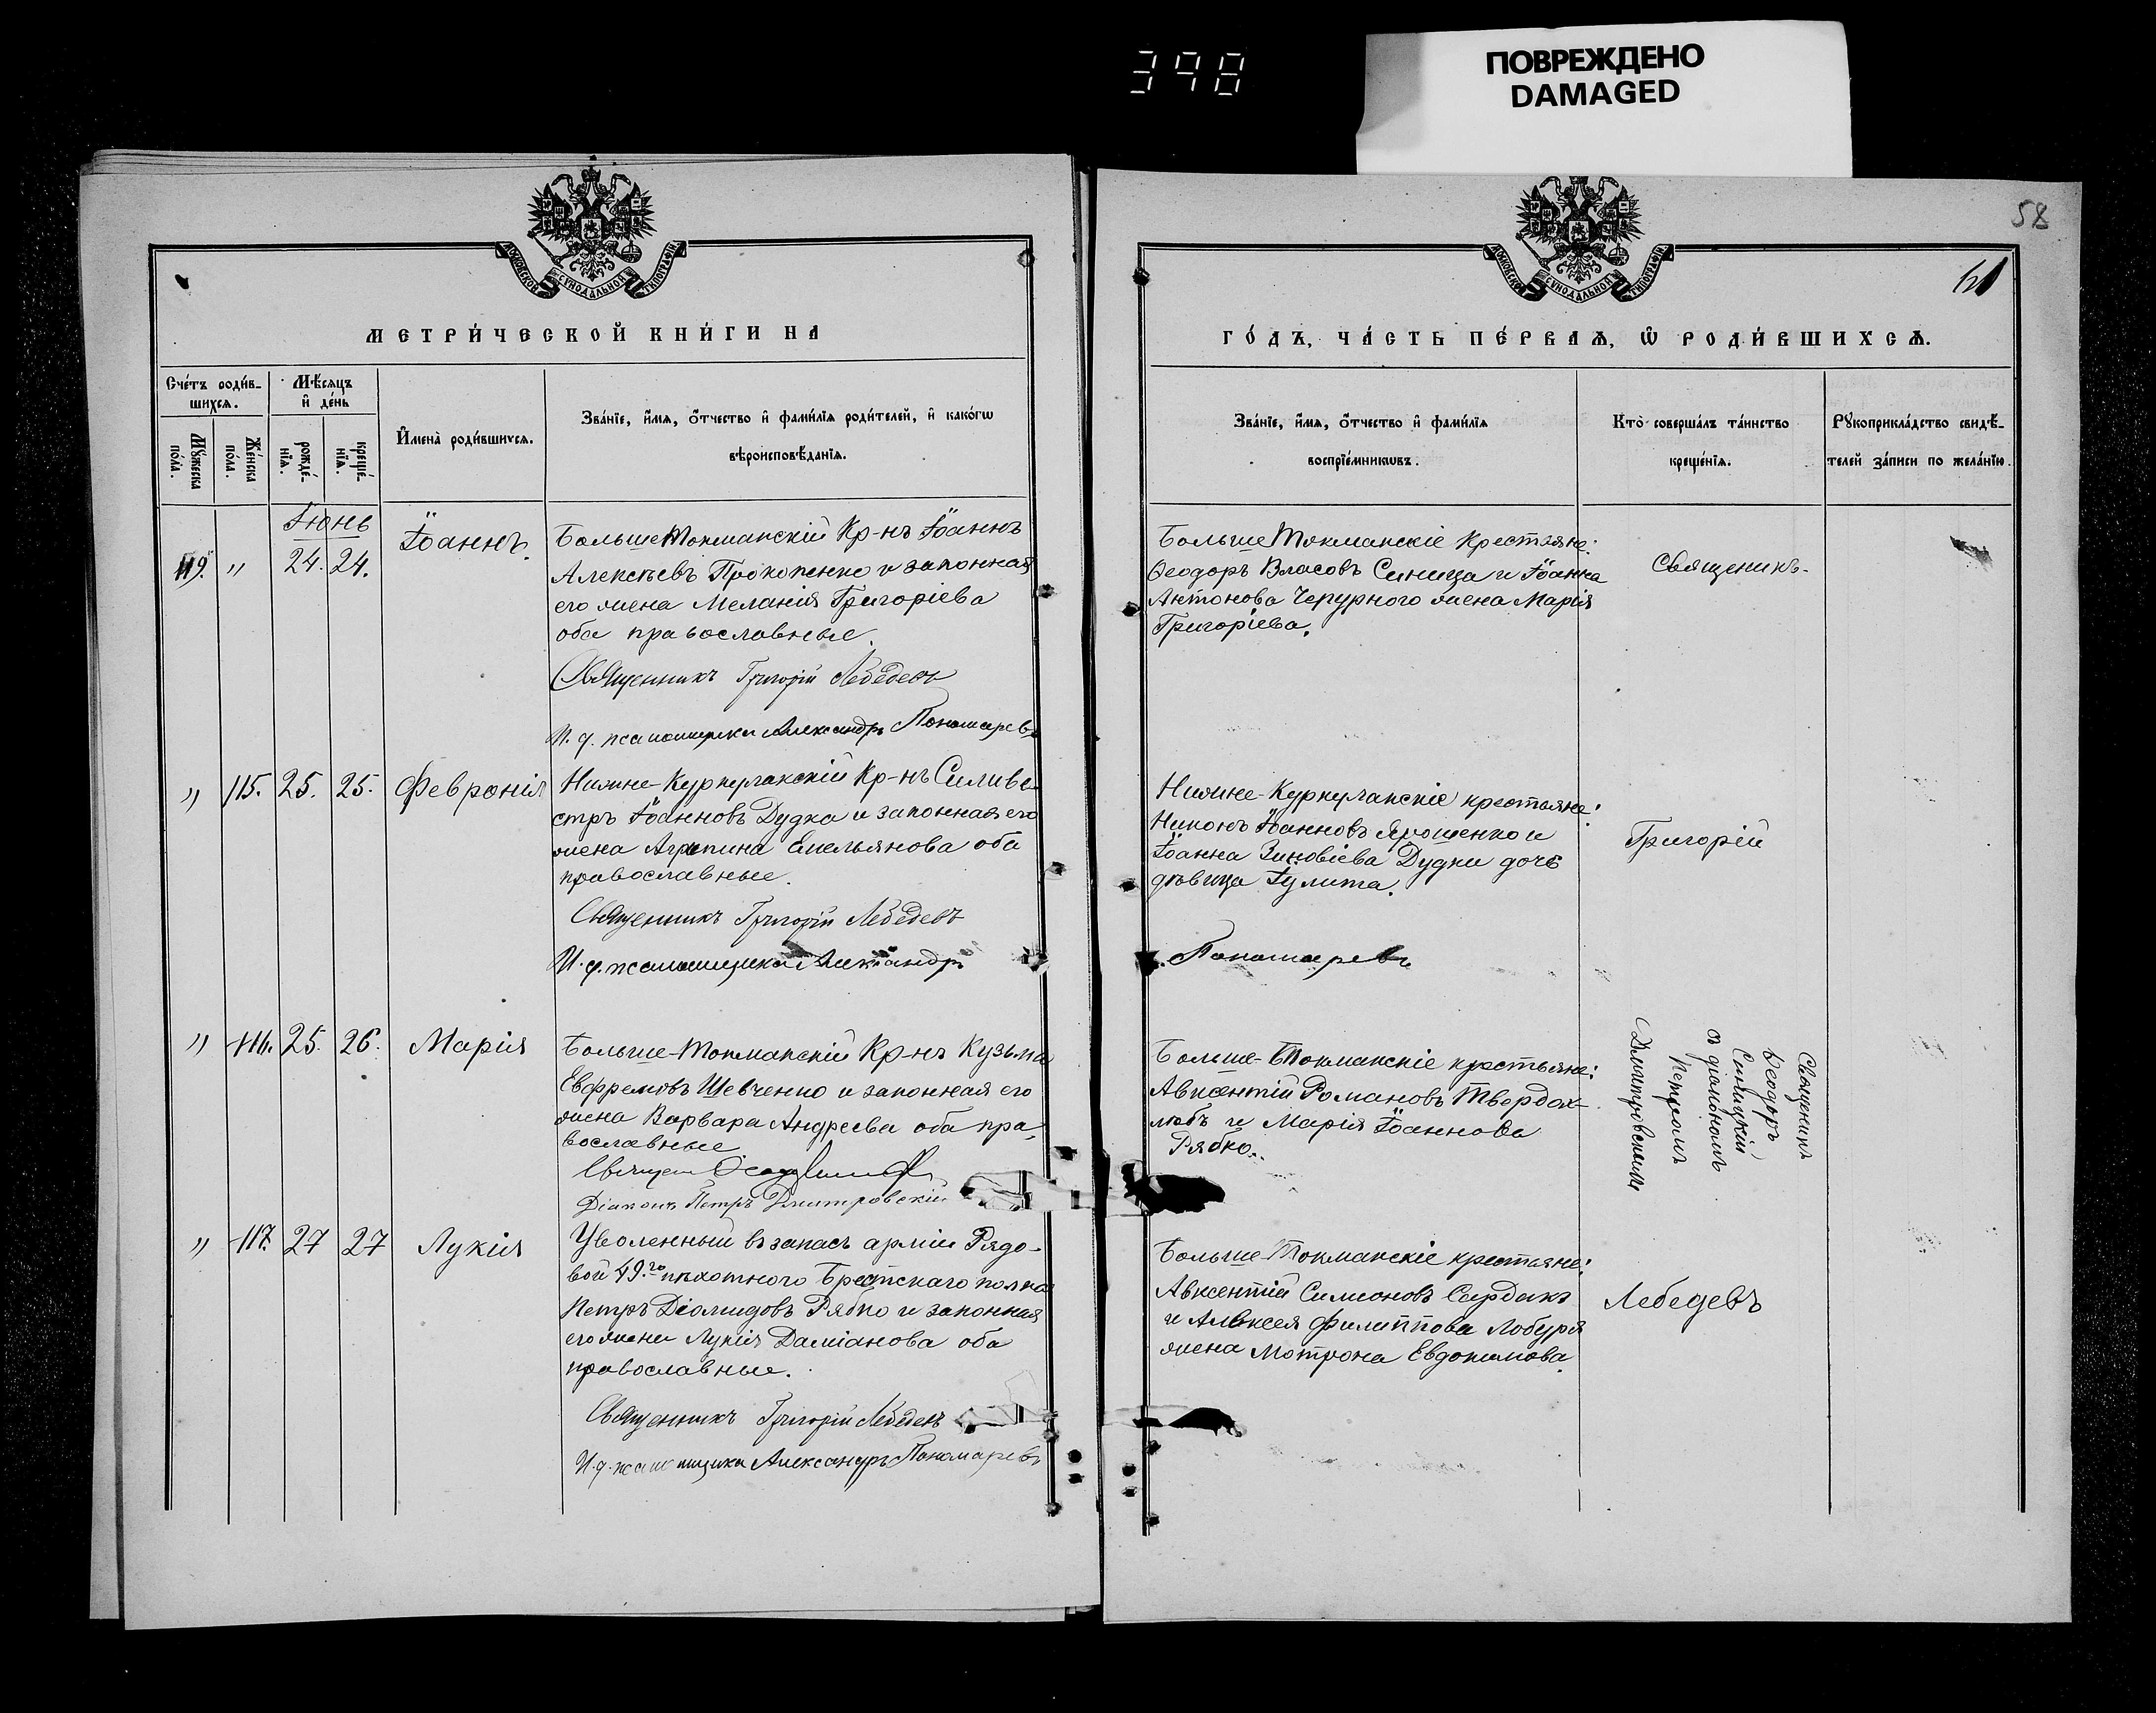 398
ПОВРЕЖДЕНО
DAMAGED
МОСКОВСКОЙ СѴНОДАЛЬНОЙ ТИПОГРАФІИ
МЕТРИ́ЧЕСКОЙ КНИ́ГИ НА
Сче́тъ роди́в-
шихсѧ.
Мѣ́сяцъ
и҆ де́нь
Мꙋ́жеска
по́ла.
Же́нска
по́ла.
рожде́-
нїѧ.
креще́-
нїѧ.
И҆мена̀ роди́вшихсѧ.
Зва́нїе, и҆́мѧ, ѻ҆́тчество и҆ фами́лїѧ роди́телей, и҆ како́гѡ
вѣроисповѣ́данїѧ.
Іюнь
119. " 24. 24. Іоаннъ.
Больше Токмакскій Кр-нъ Іоаннъ
Алексѣевъ Прокопенко и законная
его жена Меланія Григоріева
оба православные.
Священникъ Григорій Лебедевъ
И. д. псаломщика Александръ Пономаревъ
" 115. 25. 25. Февронія
Нижне-Куркулакскій Кр-нъ Силиве-
стръ Іоанновъ Дудка и законная его
жена Агрипина Емельянова оба
православные.
Священникъ Григорій Лебедевъ
И. д. псаломщика Александръ
" 116. 25. 26. Марія
Больше-Токмакскій Кр-нъ Кузьма
Евфремовъ Шевченко и законная его
жена Варвара Андреева оба пра-
вославные
Діаконъ Петръ Дмитровскій
" 117. 27 27 Лукія
Уволенный въ запасъ арміи Рядо-
вой 49.го пѣхотнаго Брестскаго полка
Петръ Діомидовъ Рябко и законная
его жена Лукія Даміанова оба
православные.
Священникъ Григорій Лебедевъ
И. д. псаломщика Александръ Пономаревъ
58
МОСКОВСКОЙ СѴНОДАЛЬНОЙ ТИПОГРАФІИ
ГО́ДЪ, ЧА́СТЬ ПЕ́РВАѦ, Ѽ РОДИ́ВШИХСѦ.
Зва́нїе, и҆́мѧ, ѻ҆́тчество и҆ фами́лїѧ
воспрїе́мникѡвъ.
Кто̀ соверша́лъ та́инство
креще́нїѧ.
Рꙋкоприкла́дство свидѣ́-
телей за́писи по жела́нїю.
Больше Токмакскіе Крестьяне:
Ѳеодоръ Власовъ Синица и Іоанна
Антонова Чепурного жена Марія
Григоріева.
Священикъ.
Нижне-Куркулакскіе крестьяне:
Никонъ Іоанновъ Ярошенко и
Іоанна Зиновіева Дудки дочь
дѣвица Іулита.
Григорій
Пономаревъ
Больше-Токмакскіе крестьяне:
Авксентій Романовъ Твердох-
лѣбъ и Марія Іоаннова
Рябко.
Священникъ
Ѳеодоръ
Синицкій
съ діакономъ
Петромъ
Дмитровскимъ
Больше-Токмакскіе крестьяне:
Авксентій Симоновъ Сердакъ
и Алексея Филиппова Лобуря
жена Мотрона Евдокимова.
Лебедевъ